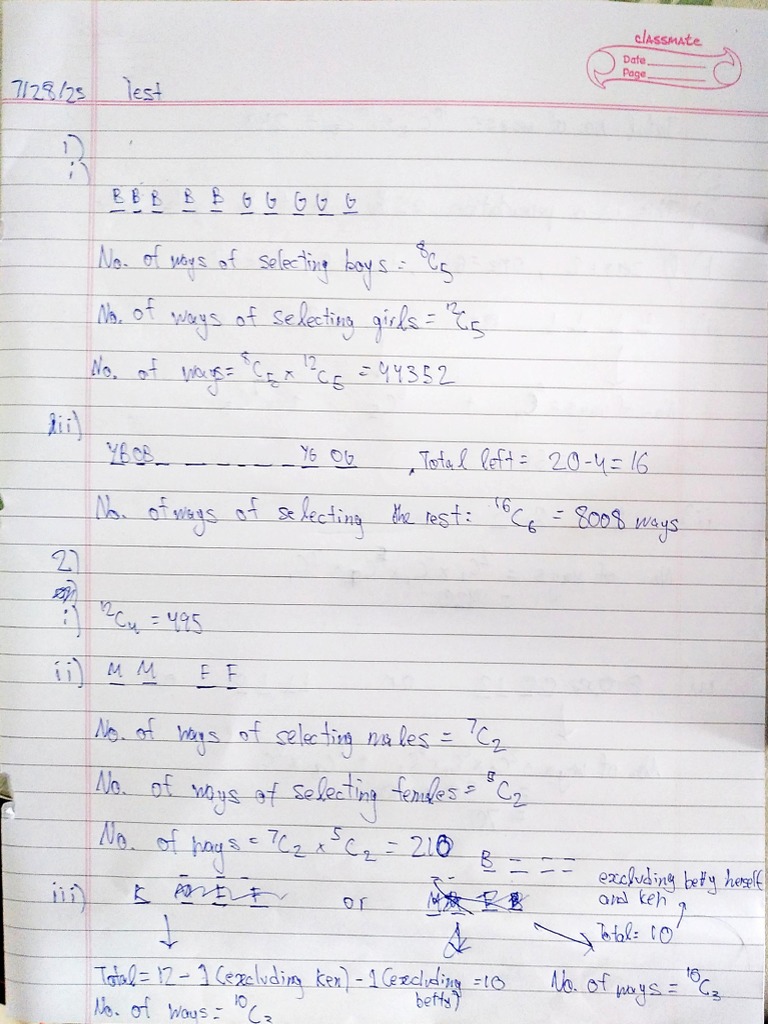 classmate
Date
Page
7/28/25 Test
1)
i)
B B B B B G G G G G
No. of ways of selecting boys = ⁸C₅
No. of ways of selecting girls = ¹²C₅
No. of ways = ⁸C₅ × ¹²C₅ = 44352
iii)
YB OB _ _ _ _ _ _ YG OG Total left = 20-4=16
No. of ways of selecting the rest: ¹⁶C₆ = 8008 ways
2)
i) ¹²C₄ = 495
ii) M M F F
No. of ways of selecting males = ⁷C₂
No. of ways of selecting females = ⁵C₂
No. of ways = ⁷C₂ × ⁵C₂ = 210
B _ _ _
excluding betty herself
and ken
iii) K _ _ _ or
Total = 10
Total = 12 - 1 (excluding ken) - 1 (excluding betty) = 10 No. of ways = ¹⁰C₃
No. of ways = ¹⁰C₃